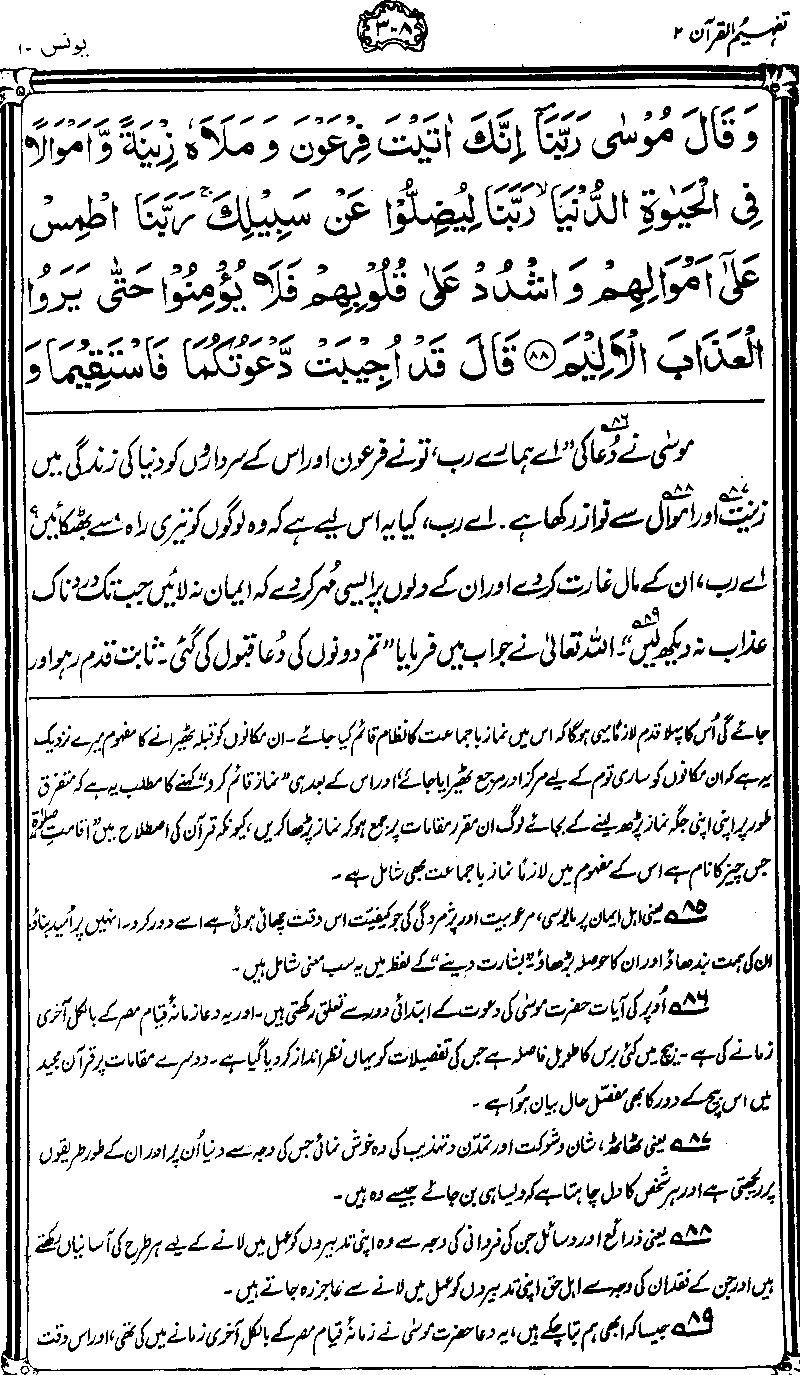 تفہیم القرآن ۲
۳۰۸
یونس ۱۰
وَقَالَ مُوْسٰى رَبَّنَاۤ اِنَّكَ اٰتَيْتَ فِرْعَوْنَ وَمَلَاَهٗ زِيْنَةً وَّاَمْوَالًا
فِى الْحَيٰوةِ الدُّنْيَا ۙ رَبَّنَا لِيُضِلُّوْا عَنْ سَبِيْلِكَ ۚ رَبَّنَا اطْمِسْ
عَلٰٓى اَمْوَالِهِمْ وَاشْدُدْ عَلٰى قُلُوْبِهِمْ فَلَا يُؤْمِنُوْا حَتّٰى يَرَوُا
الْعَذَابَ الْاَلِيْمَ ﴿۸۸﴾ قَالَ قَدْ اُجِيْبَتْ دَّعْوَتُكُمَا فَاسْتَقِيْمَا وَ
موسٰیؑ نے دُعا۸۶ کی ”اے ہمارے رب، تونے فرعون اور اس کے سرداروں کو دنیا کی زندگی میں
زینت۸۷ اور اموال۸۸ سے نواز رکھا ہے۔ اے رب، کیا یہ اس لیے ہے کہ وہ لوگوں کو تیری راہ سے بھٹکائیں؟
اے رب، ان کے مال غارت کر دے اور ان کے دلوں پر ایسی مُہر کر دے کہ ایمان نہ لائیں جب تک دردناک
عذاب نہ دیکھ لیں۸۹“۔ اللہ تعالیٰ نے جواب میں فرمایا ”تم دونوں کی دُعا قبول کی گئی۔ ثابت قدم رہو اور
جائے گی اُس کا پہلا قدم لازمًا یہی ہوگا کہ اس میں نماز باجماعت کا نظام قائم کیا جائے۔ ان مکانوں کو قبلہ ٹھیرانے کا مفہوم میرے نزدیک
یہ ہے کہ ان مکانوں کو ساری قوم کے لیے مرکز اور مرجع ٹھیرایا جائے، اور اس کے بعد ہی ”نماز قائم کرو“ کہنے کا مطلب یہ ہے کہ متفرق
طور پر اپنی اپنی جگہ نماز پڑھ لینے کے بجائے لوگ ان مقرر مقامات پر جمع ہو کر نماز پڑھا کریں، کیونکہ قرآن کی اصطلاح میں ”اقامتِ صلوٰۃ“
جس چیز کا نام ہے اس کے مفہوم میں لازمًا نماز باجماعت بھی شامل ہے۔
۸۵ یعنی اہل ایمان پر مایوسی، مرعوبیت اور پژمردگی کی جو کیفیت اس وقت چھائی ہوئی ہے اسے دور کرو۔ انہیں پرامید بناؤ۔
ان کی ہمت بندھاؤ اور ان کا حوصلہ بڑھاؤ۔ ”بشارت دینے“ کے لفظ میں یہ سب معنی شامل ہیں۔
۸۶ اُوپر کی آیات حضرت موسٰیؑ کی دعوت کے ابتدائی دور سے تعلق رکھتی ہیں۔ اور یہ دعا زمانۂ قیام مصر کے بالکل آخری
زمانے کی ہے۔ بیچ میں کئی برس کا طویل فاصلہ ہے جس کی تفصیلات کو یہاں نظر انداز کر دیا گیا ہے۔ دوسرے مقامات پر قرآن مجید
میں اس بیچ کے دور کا بھی مفصل حال بیان ہوا ہے۔
۸۷ یعنی ٹھاٹھ، شان و شوکت اور تمدن و تہذیب کی وہ خوش نمائی جس کی وجہ سے دنیا اُن پر اور ان کے طور طریقوں
پر ریجھتی ہے اور ہر شخص کا دل چاہتا ہے کہ ویسا ہی بن جائے جیسے وہ ہیں۔
۸۸ یعنی ذرائع اور وسائل جن کی فراوانی کی وجہ سے وہ اپنی تدبیروں کو عمل میں لانے کے لیے ہر طرح کی آسانیاں رکھتے
ہیں اور جن کے فقدان کی وجہ سے اہل حق اپنی تدبیروں کو عمل میں لانے سے عاجز رہ جاتے ہیں۔
۸۹ جیسا کہ ابھی ہم بتا چکے ہیں، یہ دعا حضرت موسٰیؑ نے زمانۂ قیام مصر کے بالکل آخری زمانے میں کی تھی، اور اس وقت